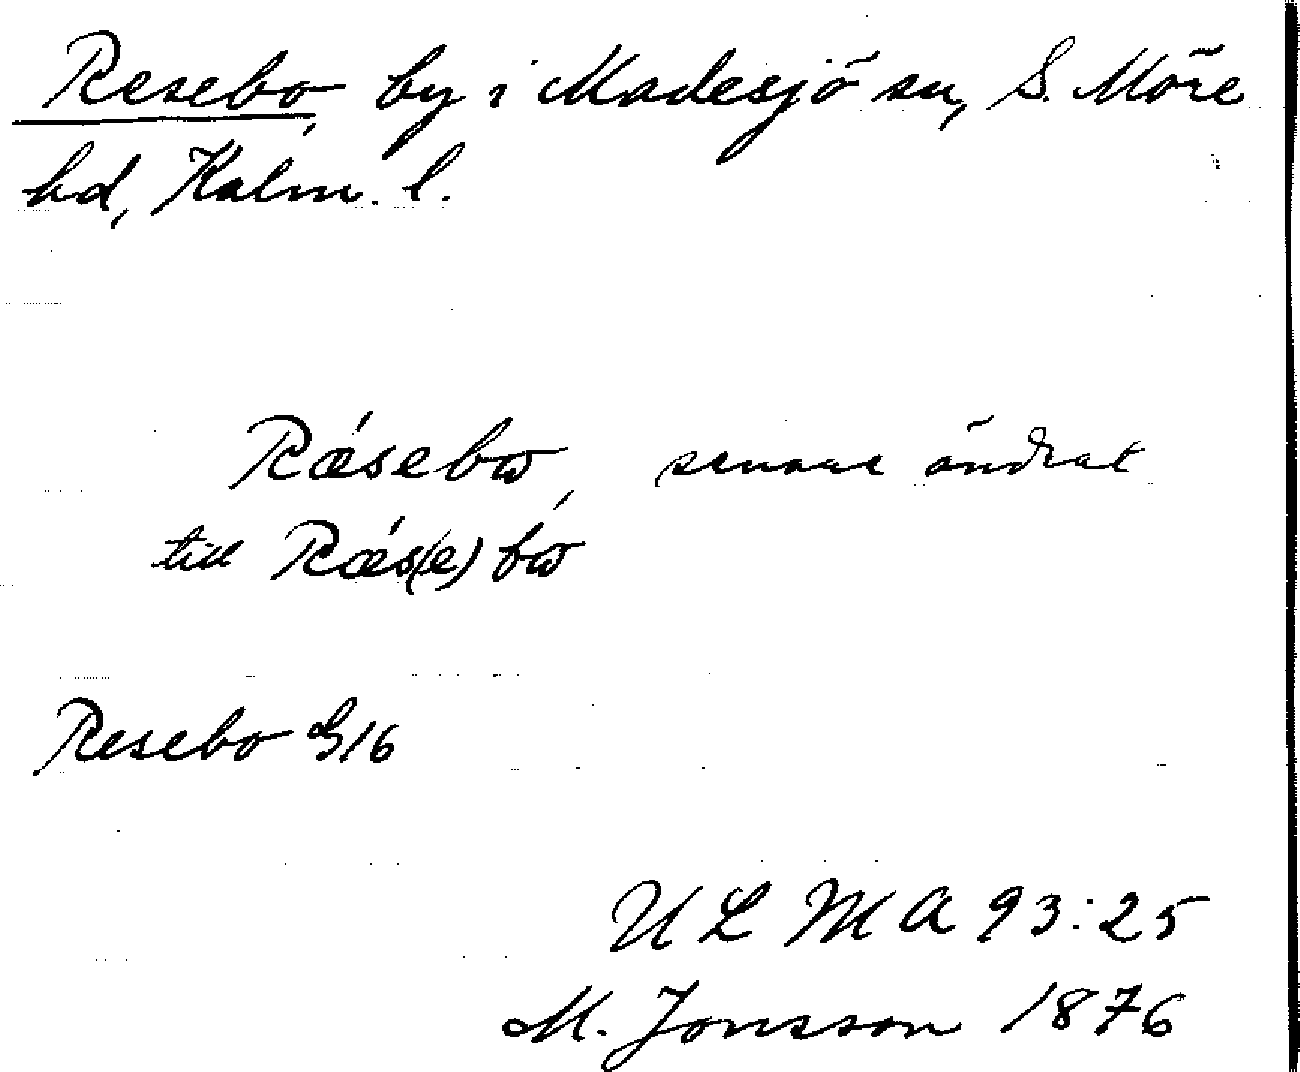 Resebo, by i Madesjö sn, S. Möre
hd, Kalm. l.
Rǽsebω, senare ändrat
till Rǽs(e)bω
Resebo G16
ULMA 93:25
M. Jonsson 1876